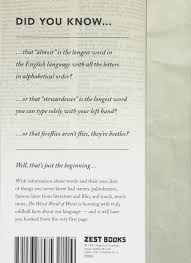 DID YOU KNOW...
...that "almost" is the longest word in
the English language with all the letters
in alphabetical order?
...or that "stewardesses" is the longest word
you can type solely with your left hand?
...or that fireflies aren't flies, they're beetles?
Well, that's just the beginning...
With information about words and their uses, lists
of things you never knew had names, palindromes,
famous lines from literature and film, and much, much
more, The Weird World of Words is bursting with truly
oddball facts about our language — and it will have
you hooked from the very first page.
ZEST BOOKS